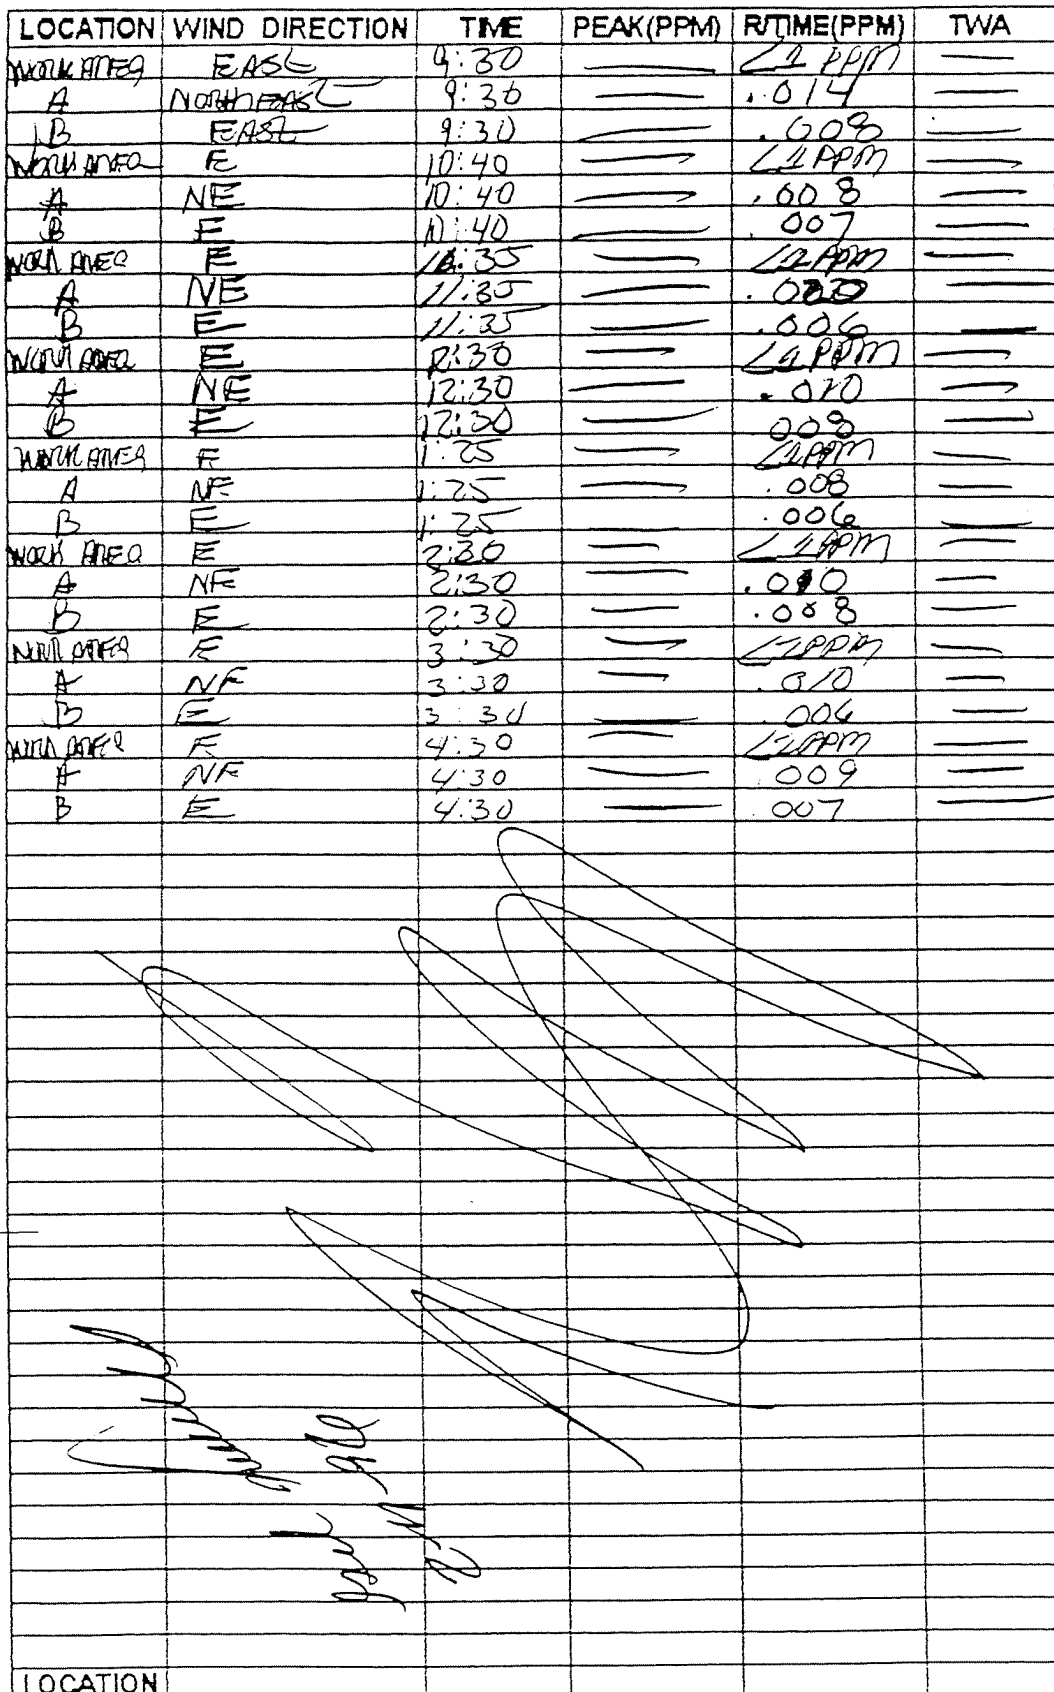 LOCATION WIND DIRECTION TIME PEAK(PPM) R/TIME(PPM) TWA
WORK AREA EAST 9:30 — <1 PPM —
A NORTHEAST 9:30 — .014 —
B EAST 9:30 — .008 —
WORK AREA E 10:40 — <1 PPM —
A NE 10:40 — .008 —
B E 10:40 — .007 —
WORK AREA E 11:35 — <1 PPM —
A NE 11:35 — —
B E 11:35 — .006 —
WORK AREA E 12:30 — <1 PPM —
A NE 12:30 — .010 —
B E 12:30 — .008 —
WORK AREA E 1:25 — <1 PPM —
A NE 1:25 — .008 —
B E 1:25 — .006 —
WORK AREA E 2:30 — <1 PPM —
A NE 2:30 — .010 —
B E 2:30 — .008 —
WORK AREA E 3:30 — <1 PPM —
A NE 3:30 — .010 —
B E 3:30 — .006 —
WORK AREA E 4:30 — <1 PPM —
A NE 4:30 — .009 —
B E 4:30 — .007 —
LOCATION